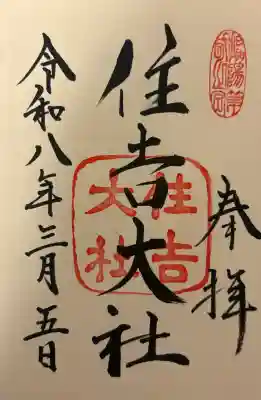 奉拝
住吉大社
住吉大社
令和八年三月五日